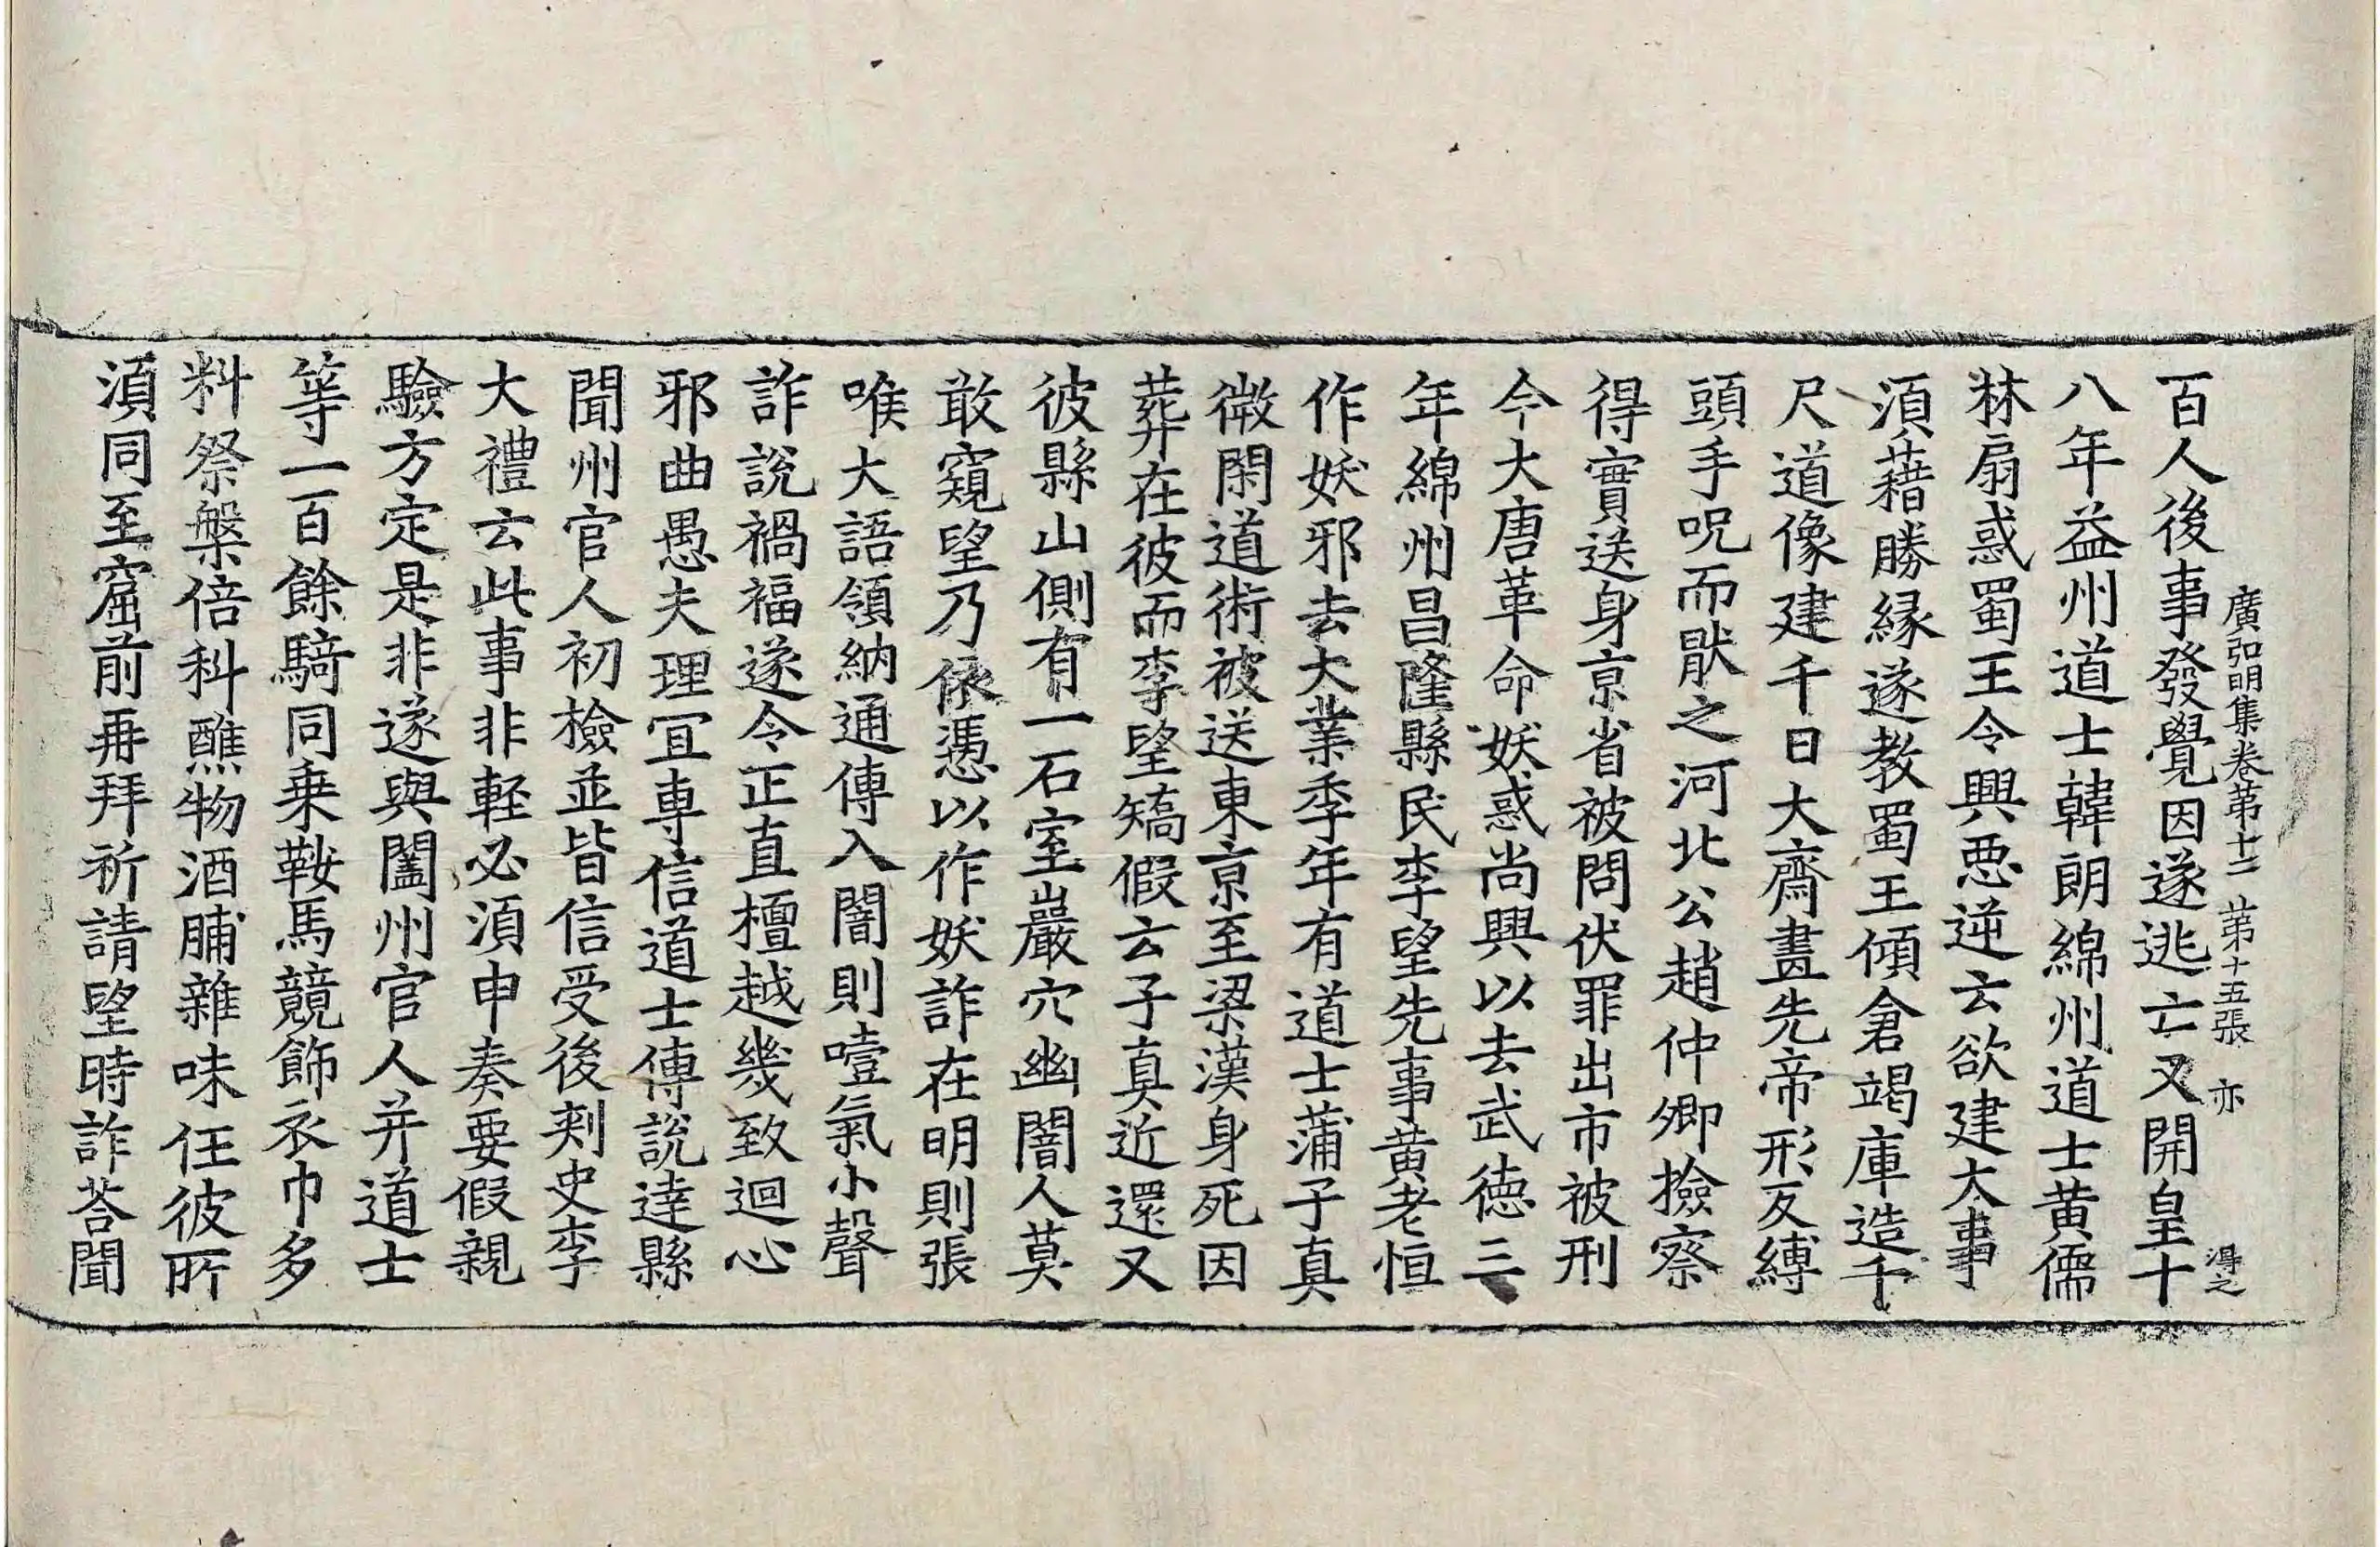 廣弘明集卷第十二 第十五張 亦 得之
百人後事發覺因遂逃亡又開皇十
八年益州道士韓朗綿州道士黃儒
林扇惑蜀王令興惡逆云欲建大事
湏藉勝縁遂教蜀王傾倉竭庫造千
尺道像建千日大齋畫先帝形反縛
頭手呪而猒之河北公趙仲卿撿察
得實送身京省被問伏罪出市被刑
今大唐革命妖惑尚興以去武德三
年綿州昌隆縣民李望先事黃老恒
作妖邪去大業季年有道士蒲子真
微閑道術被送東京至梁漢身死因
葬在彼而李望矯假云子真近還又
彼縣山側有一石室巖穴幽闇人莫
敢窺望乃依憑以作妖詐在明則張
喉大語領納通傳入闇則噎氣小聲
詐說禍福遂令正直檀越幾致迴心
邪曲愚夫理冝專信道士傳說達縣
聞州官人初檢並皆信受後刾史李
大禮云此事非輕必湏申奏要假親
驗方定是非遂與闔州官人并道士
等一百餘騎同乗鞍馬競飾衣巾多
料祭盤倍科醮物酒脯雜味任彼所
湏同至窟前再拜祈請望時詐荅聞